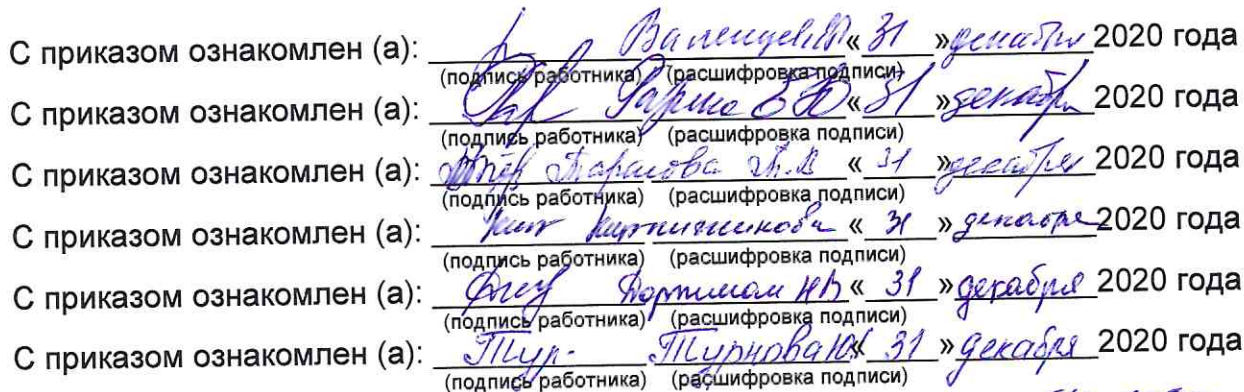 С приказом ознакомлен (а): « 31 » декабря 2020 года
(подпись работника) (расшифровка подписи)
С приказом ознакомлен (а): « 31 » декабря 2020 года
(подпись работника) (расшифровка подписи)
С приказом ознакомлен (а): Тарасова « 31 » декабря 2020 года
(подпись работника) (расшифровка подписи)
С приказом ознакомлен (а): « 31 » декабря 2020 года
(подпись работника) (расшифровка подписи)
С приказом ознакомлен (а): « 31 » декабря 2020 года
(подпись работника) (расшифровка подписи)
С приказом ознакомлен (а): Тур- Турнова « 31 » декабря 2020 года
(подпись работника) (расшифровка подписи)